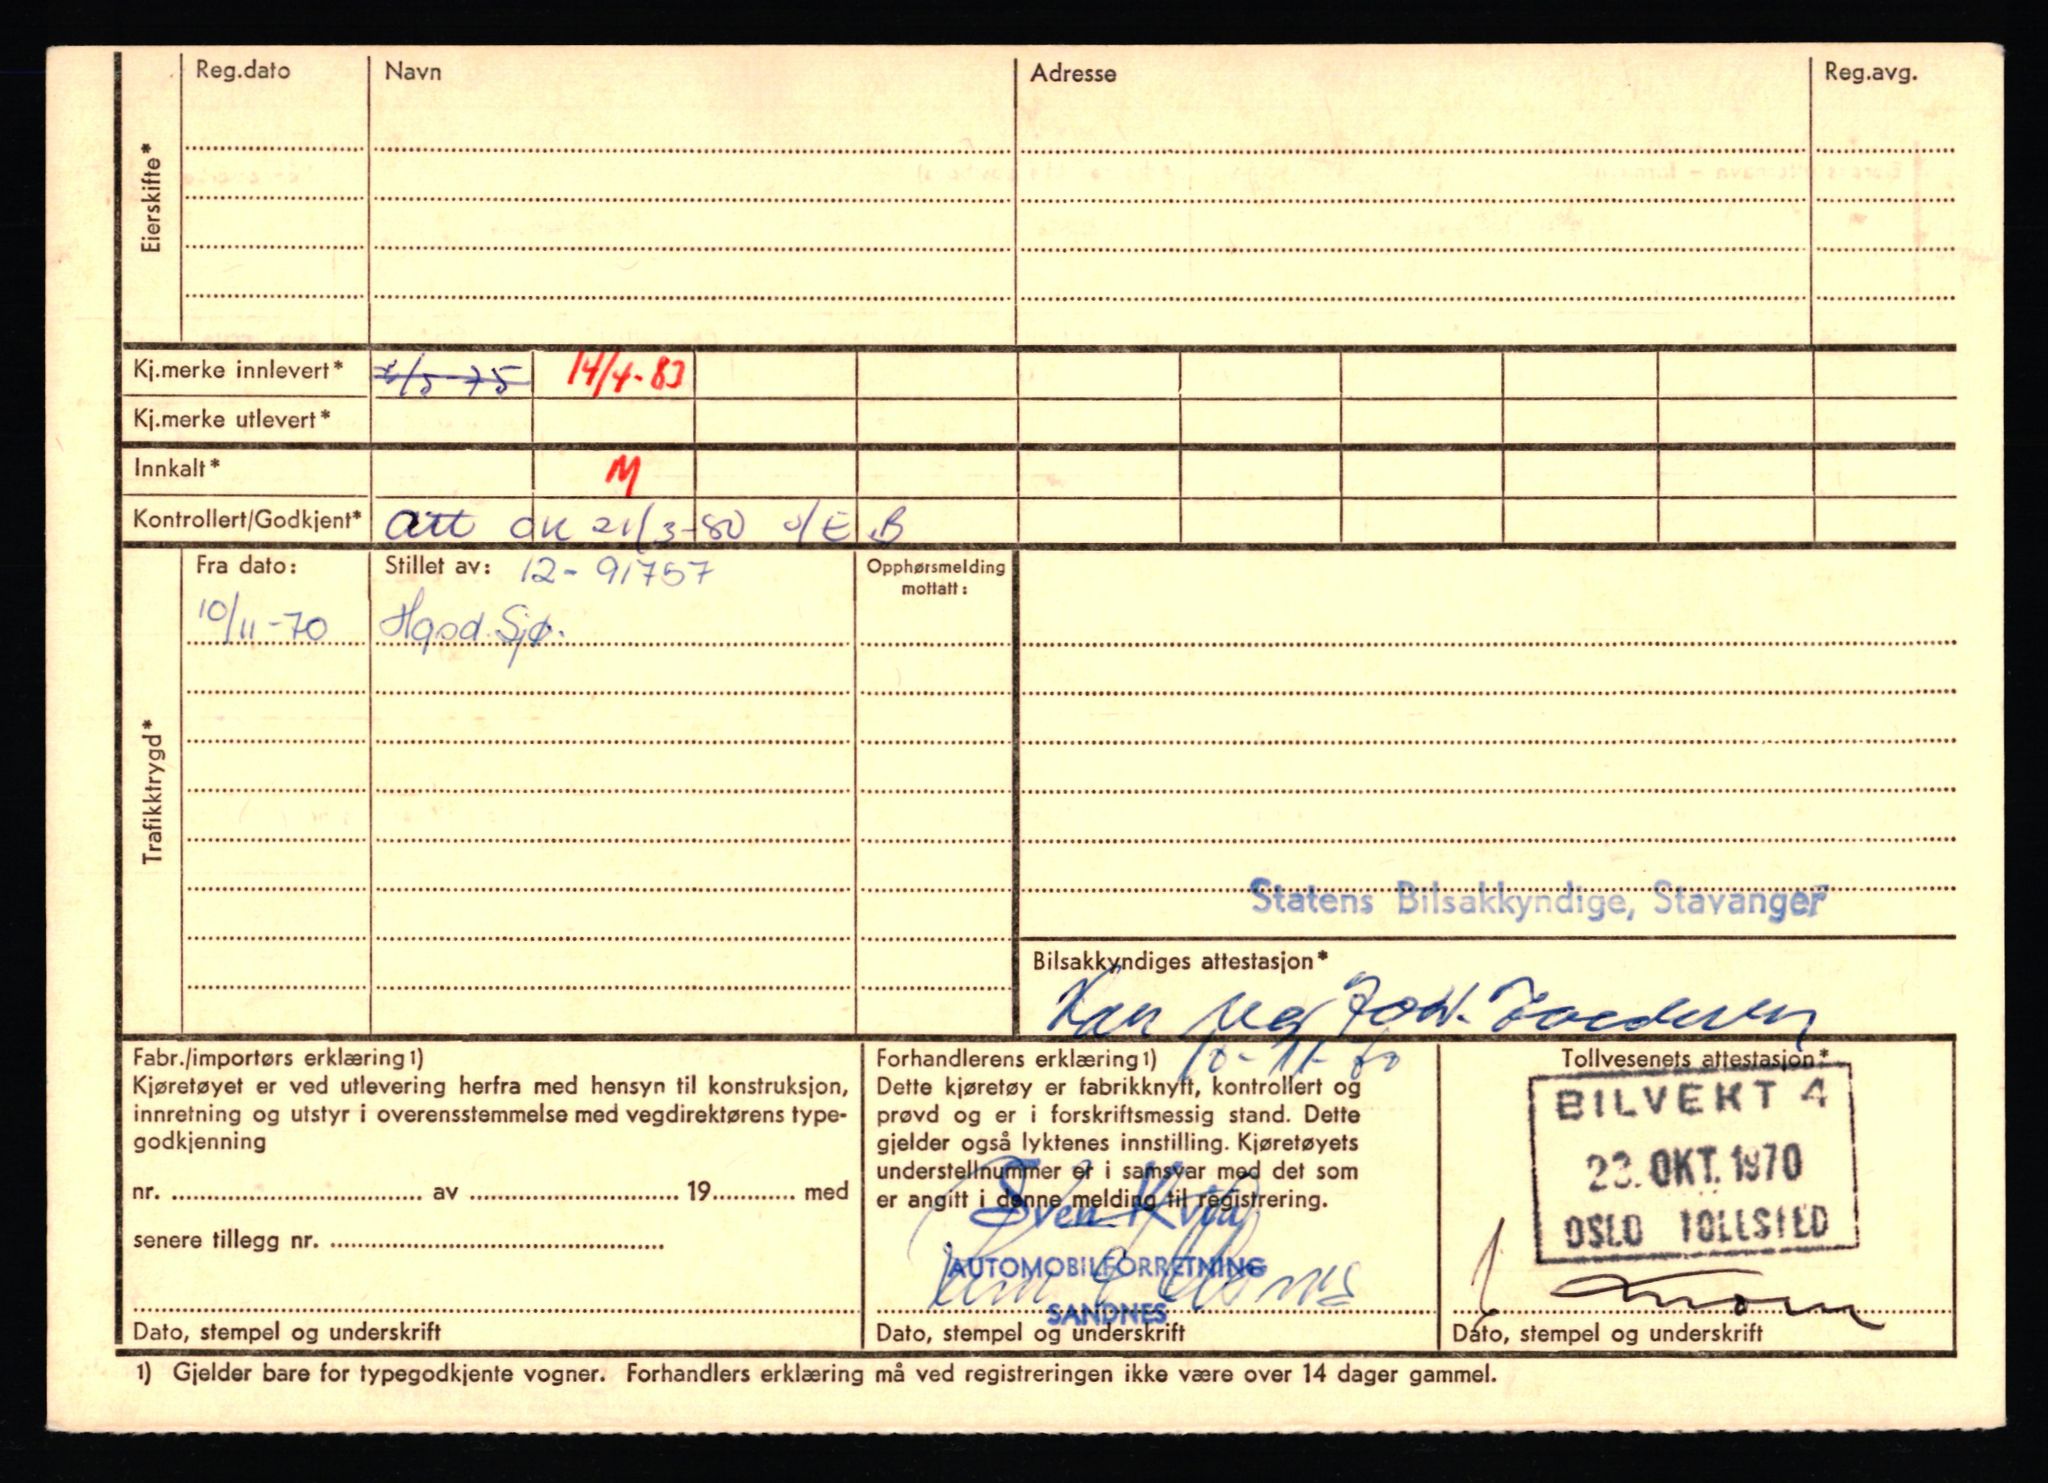 Reg.dato Navn Adresse Reg.avg.
Eierskifte*
Kj.merke innlevert* 14/4-83
Kj.merke utlevert*
Innkalt* M
Kontrollert/Godkjent* Att OK 21/3-80 B
Fra dato: Stillet av: 12-91757 Opphørsmelding
mottatt:
10/11-70 Hgsd. Sjø.
Trafikktrygd*
Statens Bilsakkyndige, Stavanger
Bilsakkyndiges attestasjon*
Kan reg
10-11-70
Fabr./importørs erklæring 1)
Kjøretøyet er ved utlevering herfra med hensyn til konstruksjon,
innretning og utstyr i overensstemmelse med vegdirektørens type-
godkjenning
nr. av 19 med
senere tillegg nr.
Dato, stempel og underskrift
Forhandlerens erklæring 1)
Dette kjøretøy er fabrikknytt, kontrollert og
prøvd og er i forskriftsmessig stand. Dette
gjelder også lyktenes innstilling. Kjøretøyets
understellnummer er i samsvar med det som
er angitt i denne melding til registrering.
Sven Kvia
AUTOMOBILFORRETNING
SANDNES
Dato, stempel og underskrift
Tollvesenets attestasjon*
BILVEKT 4
23. OKT. 1970
OSLO TOLLSTED
Dato, stempel og underskrift
1) Gjelder bare for typegodkjente vogner. Forhandlers erklæring må ved registreringen ikke være over 14 dager gammel.